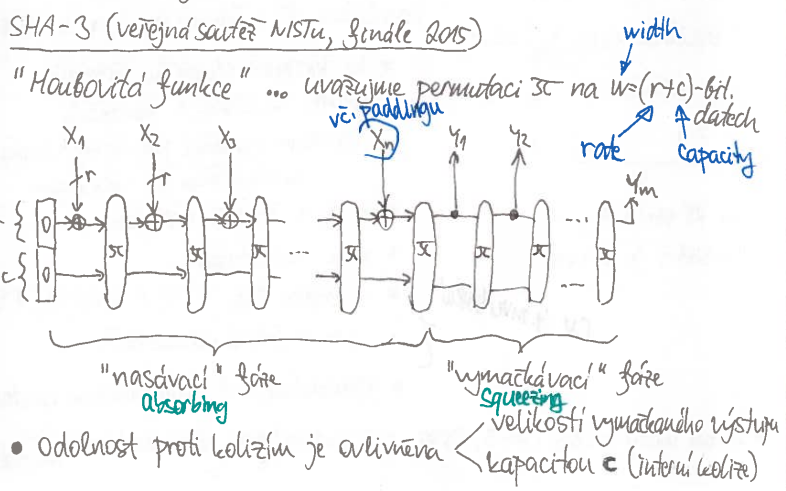 SHA-3 (veřejná soutěž NISTu, finále 2015)
width
"Houbovitá funkce" ... uvažujme permutaci π na w=(r+c)-bit.
datech
vč. paddingu
rate
capacity
X1 X2 X3 Xn Y1 Y2
r r
Ym
0 π π π ... π π π π ... π
c 0 ...
"nasávací" fáze "vymačkávací" fáze
absorbing squeezing
• odolnost proti kolizím je ovlivněna
velikostí vymačkaného výstupu
kapacitou c (interní kolize)